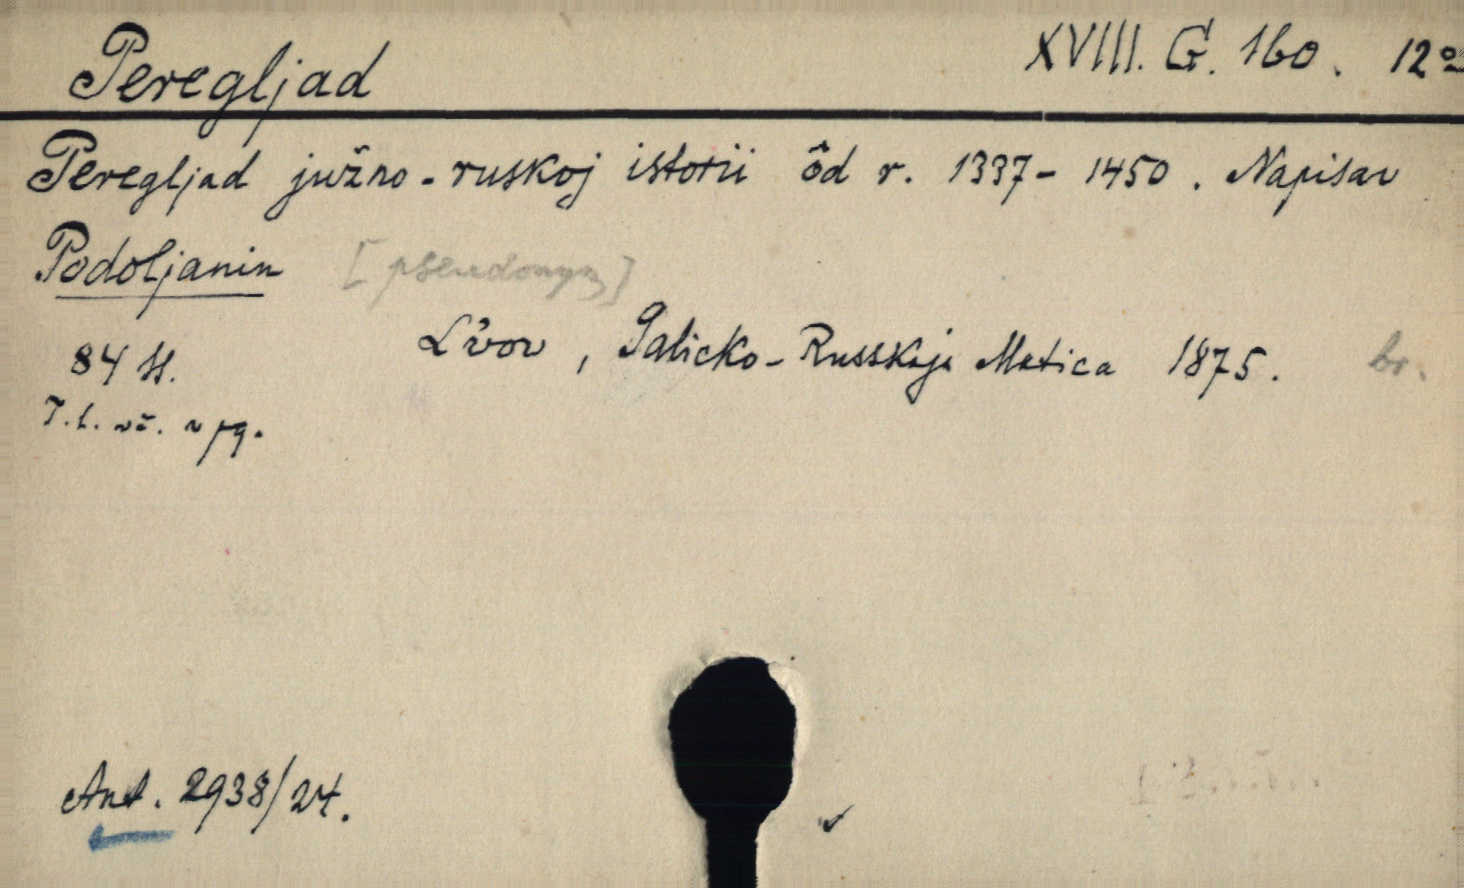 Peregljad XVIII. G. 160. 12°
Peregljad južno-ruskoj istorii ôd r. 1337-1450. Napisav
Podoljanin [pseudonym]
L'vov, Galicko-Russkaja Matica 1875. br.
84 st.
T. l. vč. v pg.
Ant. 2938/24.